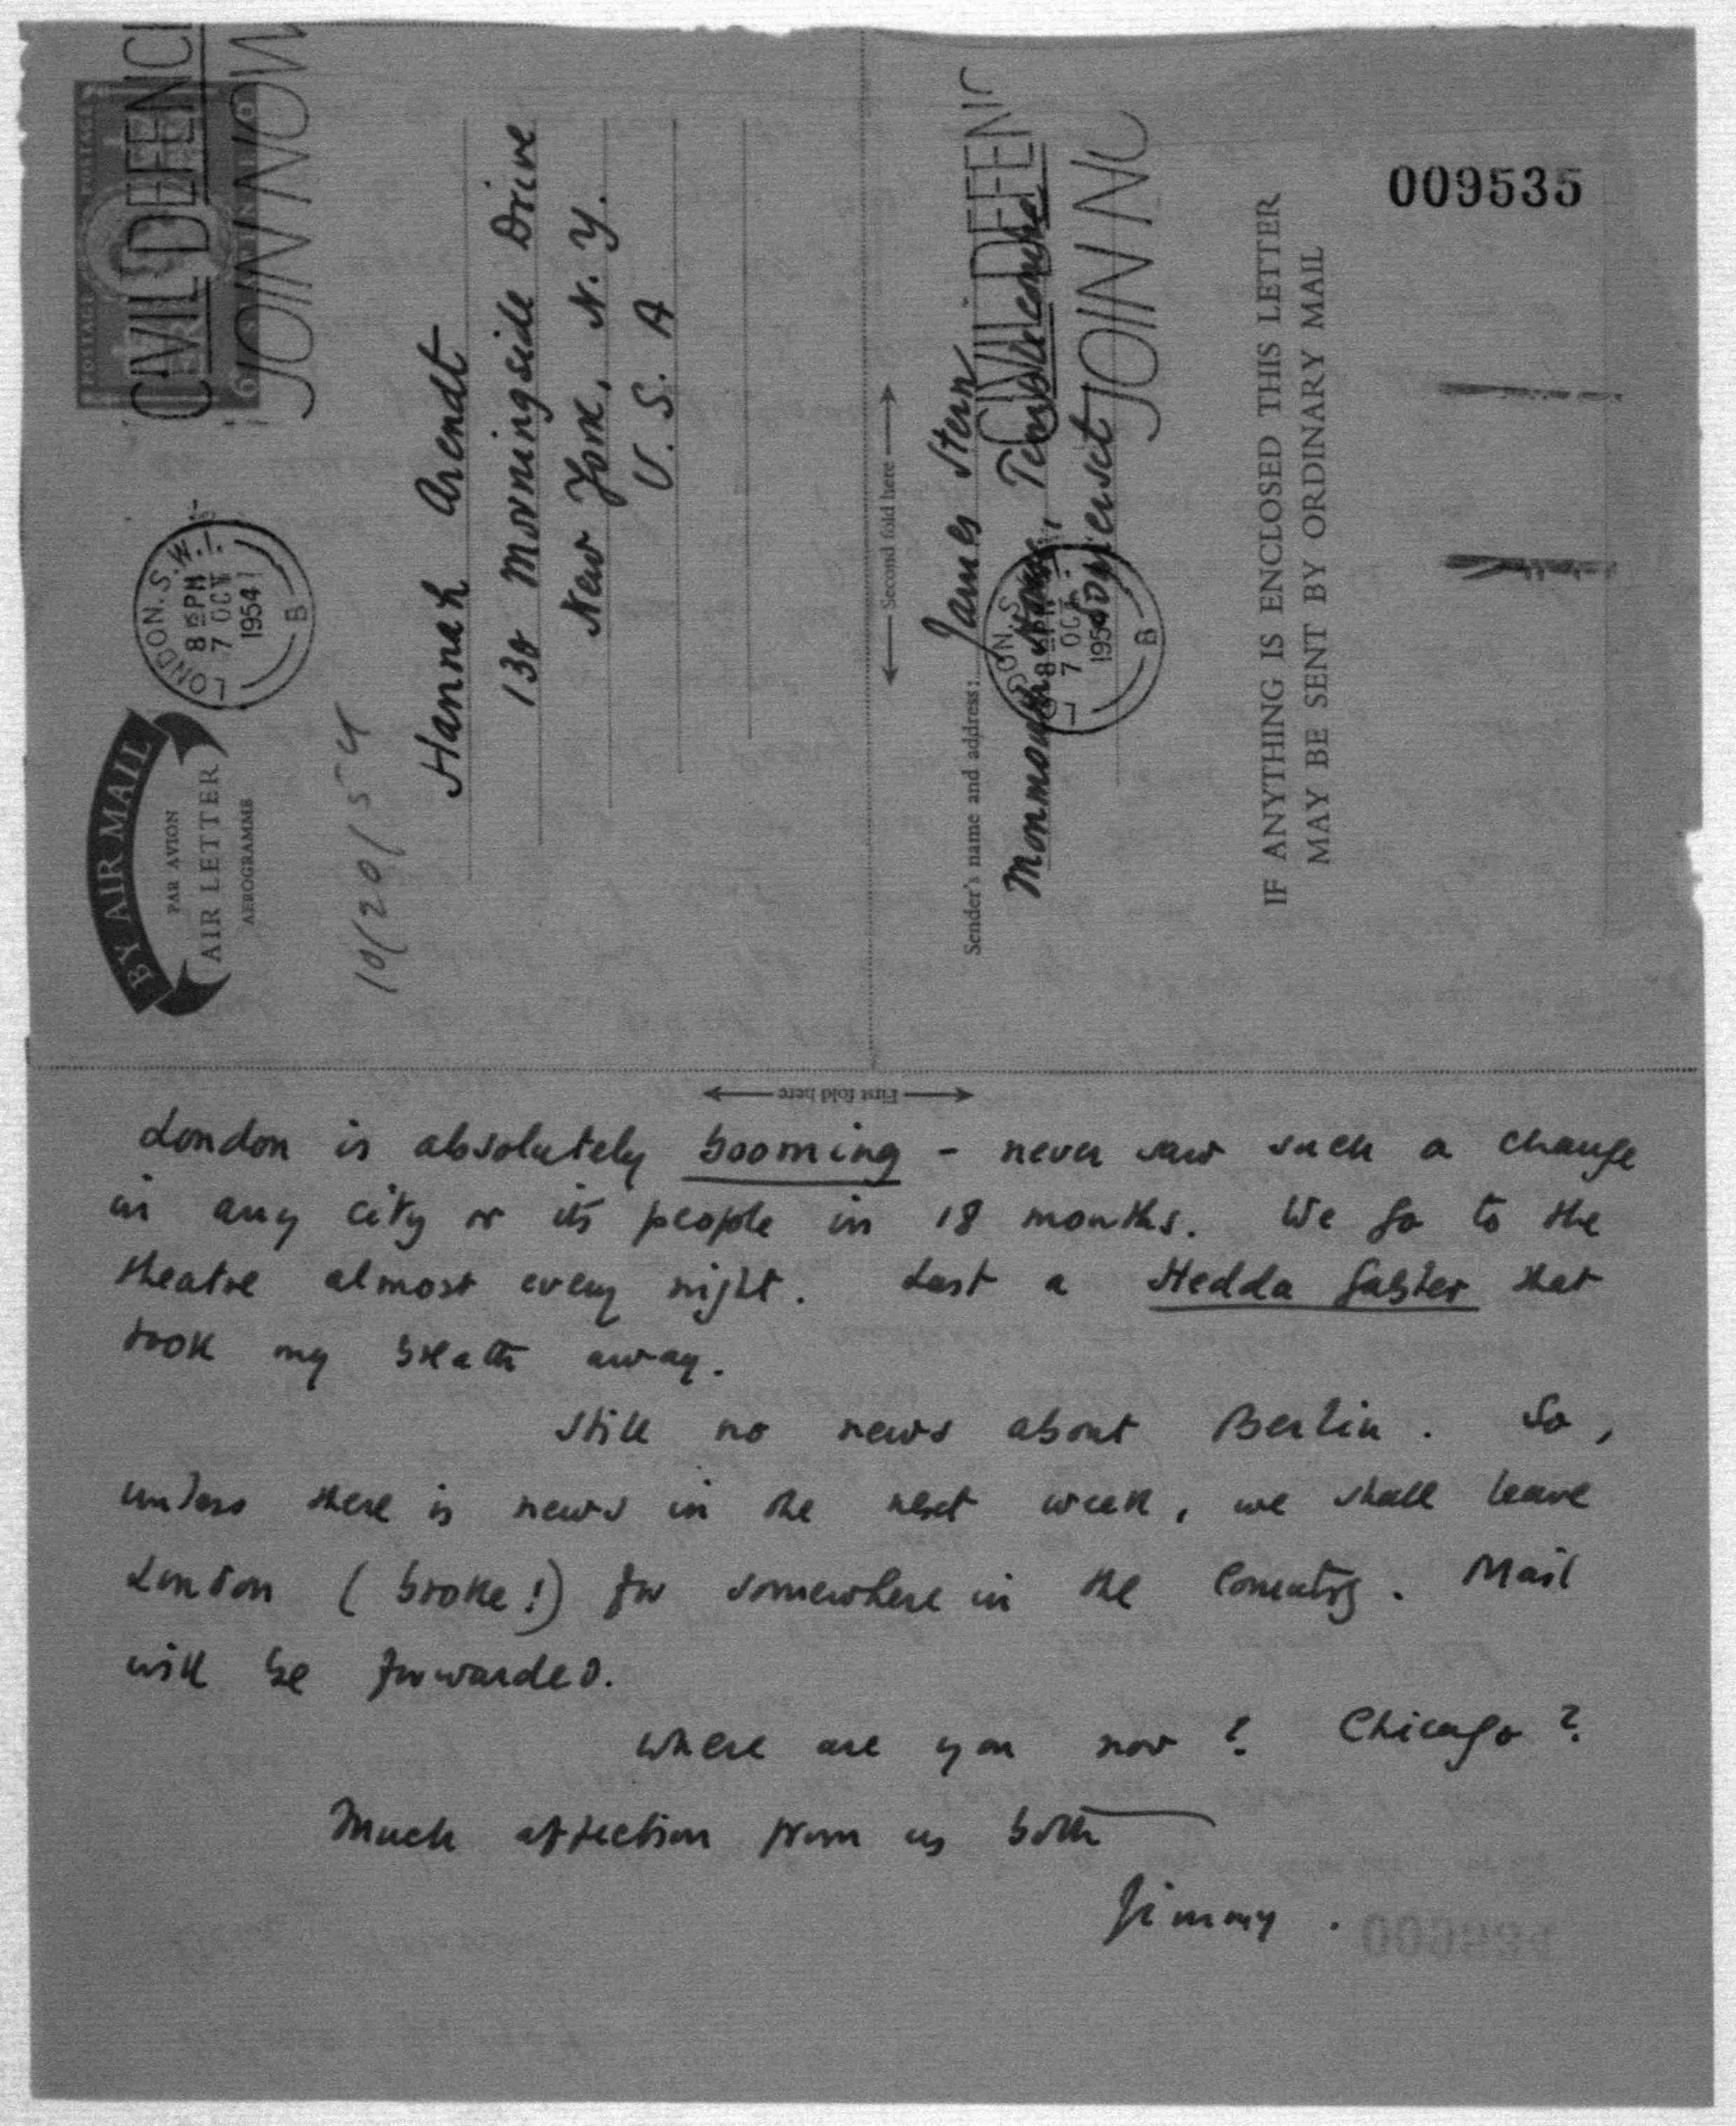 CIVIL DEFENC
JOIN NOW
POSTAGE
POSTAGE
LONDON.S.W.1.
8 15 PM
7 OCT
1954
B
BY AIR MAIL
PAR AVION
AIR LETTER
AEROGRAMME
10/20/54
Hannah Arendt
130 Morningside Drive
New York, N. Y.
U. S. A
← Second fold here →
CIVIL DEFENC
JOIN NO
Sender's name and address: James Stern
Monmouth House, Templecombe
Somerset
7 OCT
1954
B
IF ANYTHING IS ENCLOSED THIS LETTER
MAY BE SENT BY ORDINARY MAIL
009535
← First fold here →
London is absolutely booming - never saw such a change
in any city or its people in 18 months. We go to the
theatre almost every night. Last a Hedda Gabler that
took my breath away.
Still no news about Berlin. So,
unless there is news in the next week, we shall leave
London (broke!) for somewhere in the Country. Mail
will be forwarded.
Where are you now? Chicago?
Much affection from us both
Jimmy.